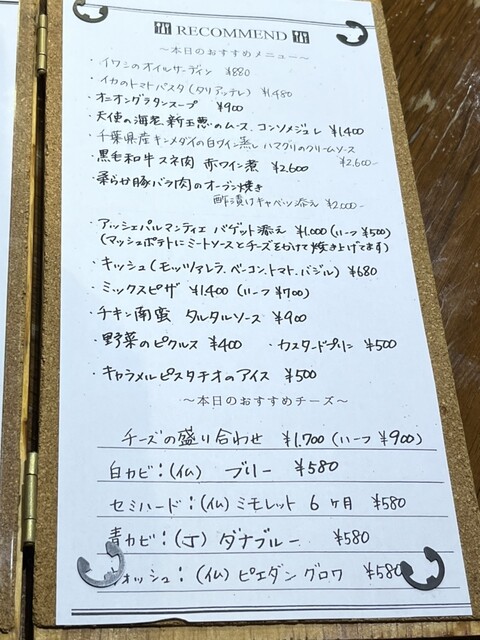 RECOMMEND
～本日のおすすめメニュー～
・イワシのオイルサーディン ¥880
・イカのトマトパスタ（タリアッテレ） ¥1,480
・オニオングラタンスープ ¥900
・天使の海老、新玉葱のムース、コンソメジュレ ¥1,400
・千葉県産キンメダイの白ワイン蒸し ハマグリのクリームソース ¥2,600-
・黒毛和牛スネ肉 赤ワイン煮 ¥2,600
・柔らか豚バラ肉のオーブン焼き
酢漬けキャベツ添え ¥2,000-
・アッシェパルマンティエ バゲット添え ¥1,000（ハーフ ¥500）
（マッシュポテトにミートソースとチーズをかけて焼き上げてます）
・キッシュ（モッツァレラ、ベーコン、トマト、バジル） ¥680
・ミックスピザ ¥1,400（ハーフ ¥700）
・チキン南蛮 タルタルソース ¥900
・野菜のピクルス ¥400 ・カスタードプリン ¥500
・キャラメルピスタチオのアイス ¥500
～本日のおすすめチーズ～
チーズの盛り合わせ ¥1,700（ハーフ ¥900）
白カビ：（仏） ブリー ¥580
セミハード：（仏） ミモレット 6ヶ月 ¥580
青カビ：（丁） ダナブルー ¥580
ウォッシュ：（仏） ピエダングロワ ¥580